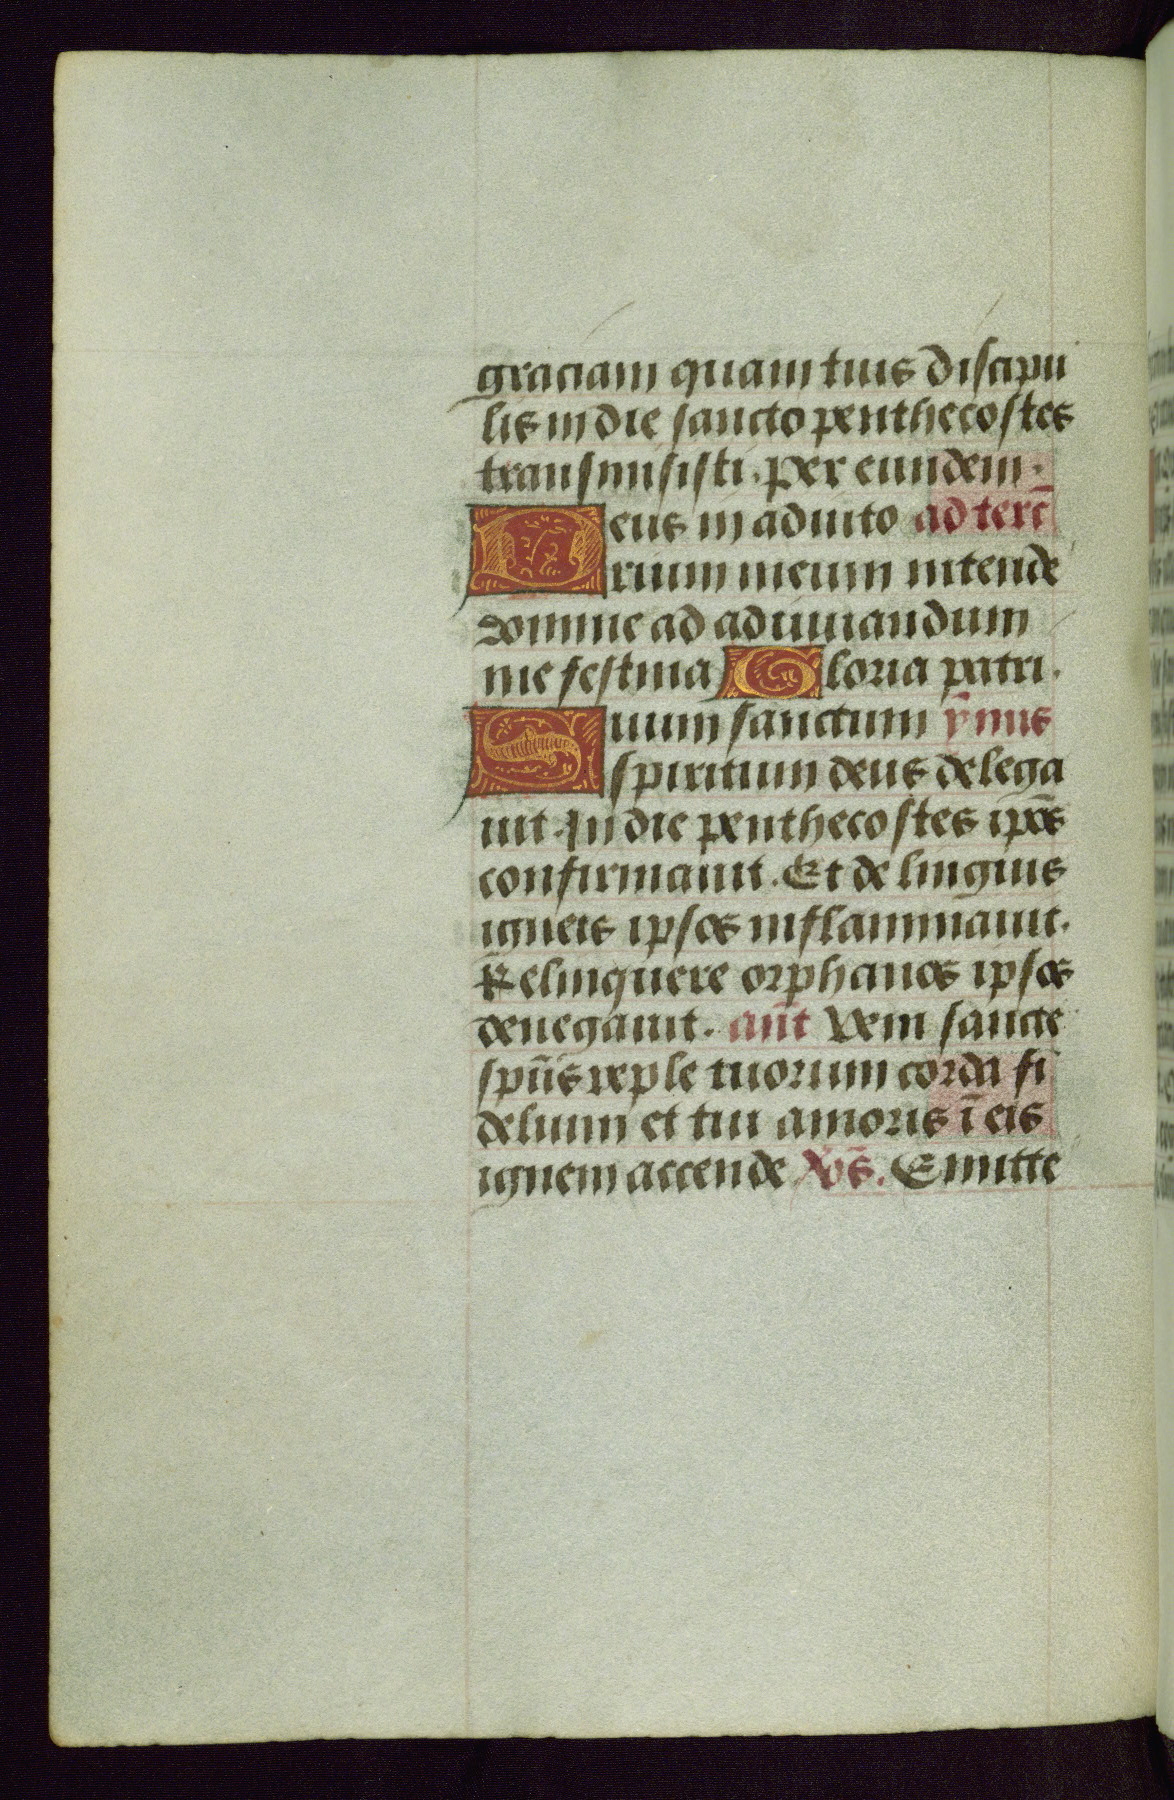 graciam quam tuis discipu
lis in die sancto penthecostes
transmisisti. per eundem.
Deus in adiuto ad terc̄
rium meum intende
domine ad adiuuandum
me festina Gloria patri.
Suum sanctum ȳmus
spiritum deus delega
uit. In die penthecostes ip̄os
confirmauit. Et de linguis
igneis ipsos inflammauit.
Relinquere orphanos ipsos
denegauit. an̄t Veni sancte
sp̄us reple tuorum corda fi
delium et tui amoris ī eis
ignem accende V̄s. Emitte